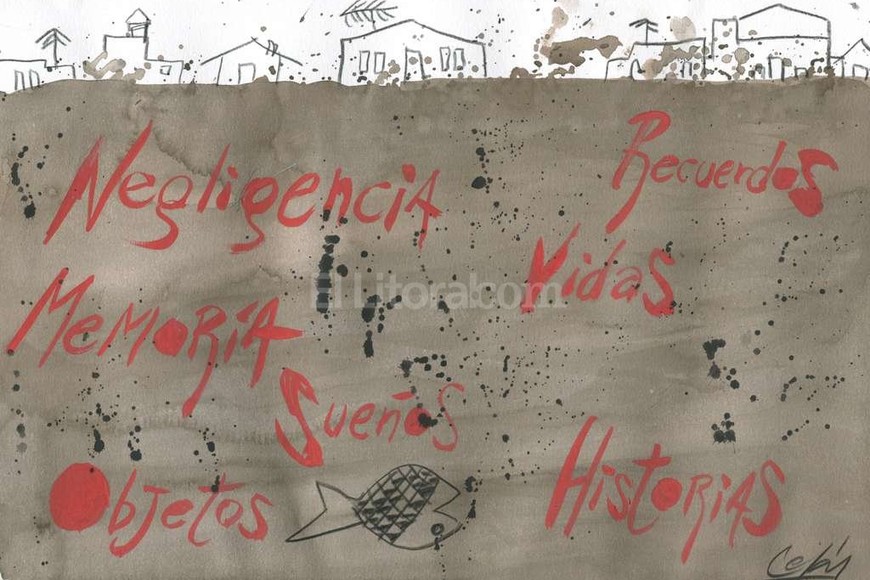 Negligencia
Recuerdos
Vidas
El Litoral.com
Memoria
Sueños
Objetos
Historias